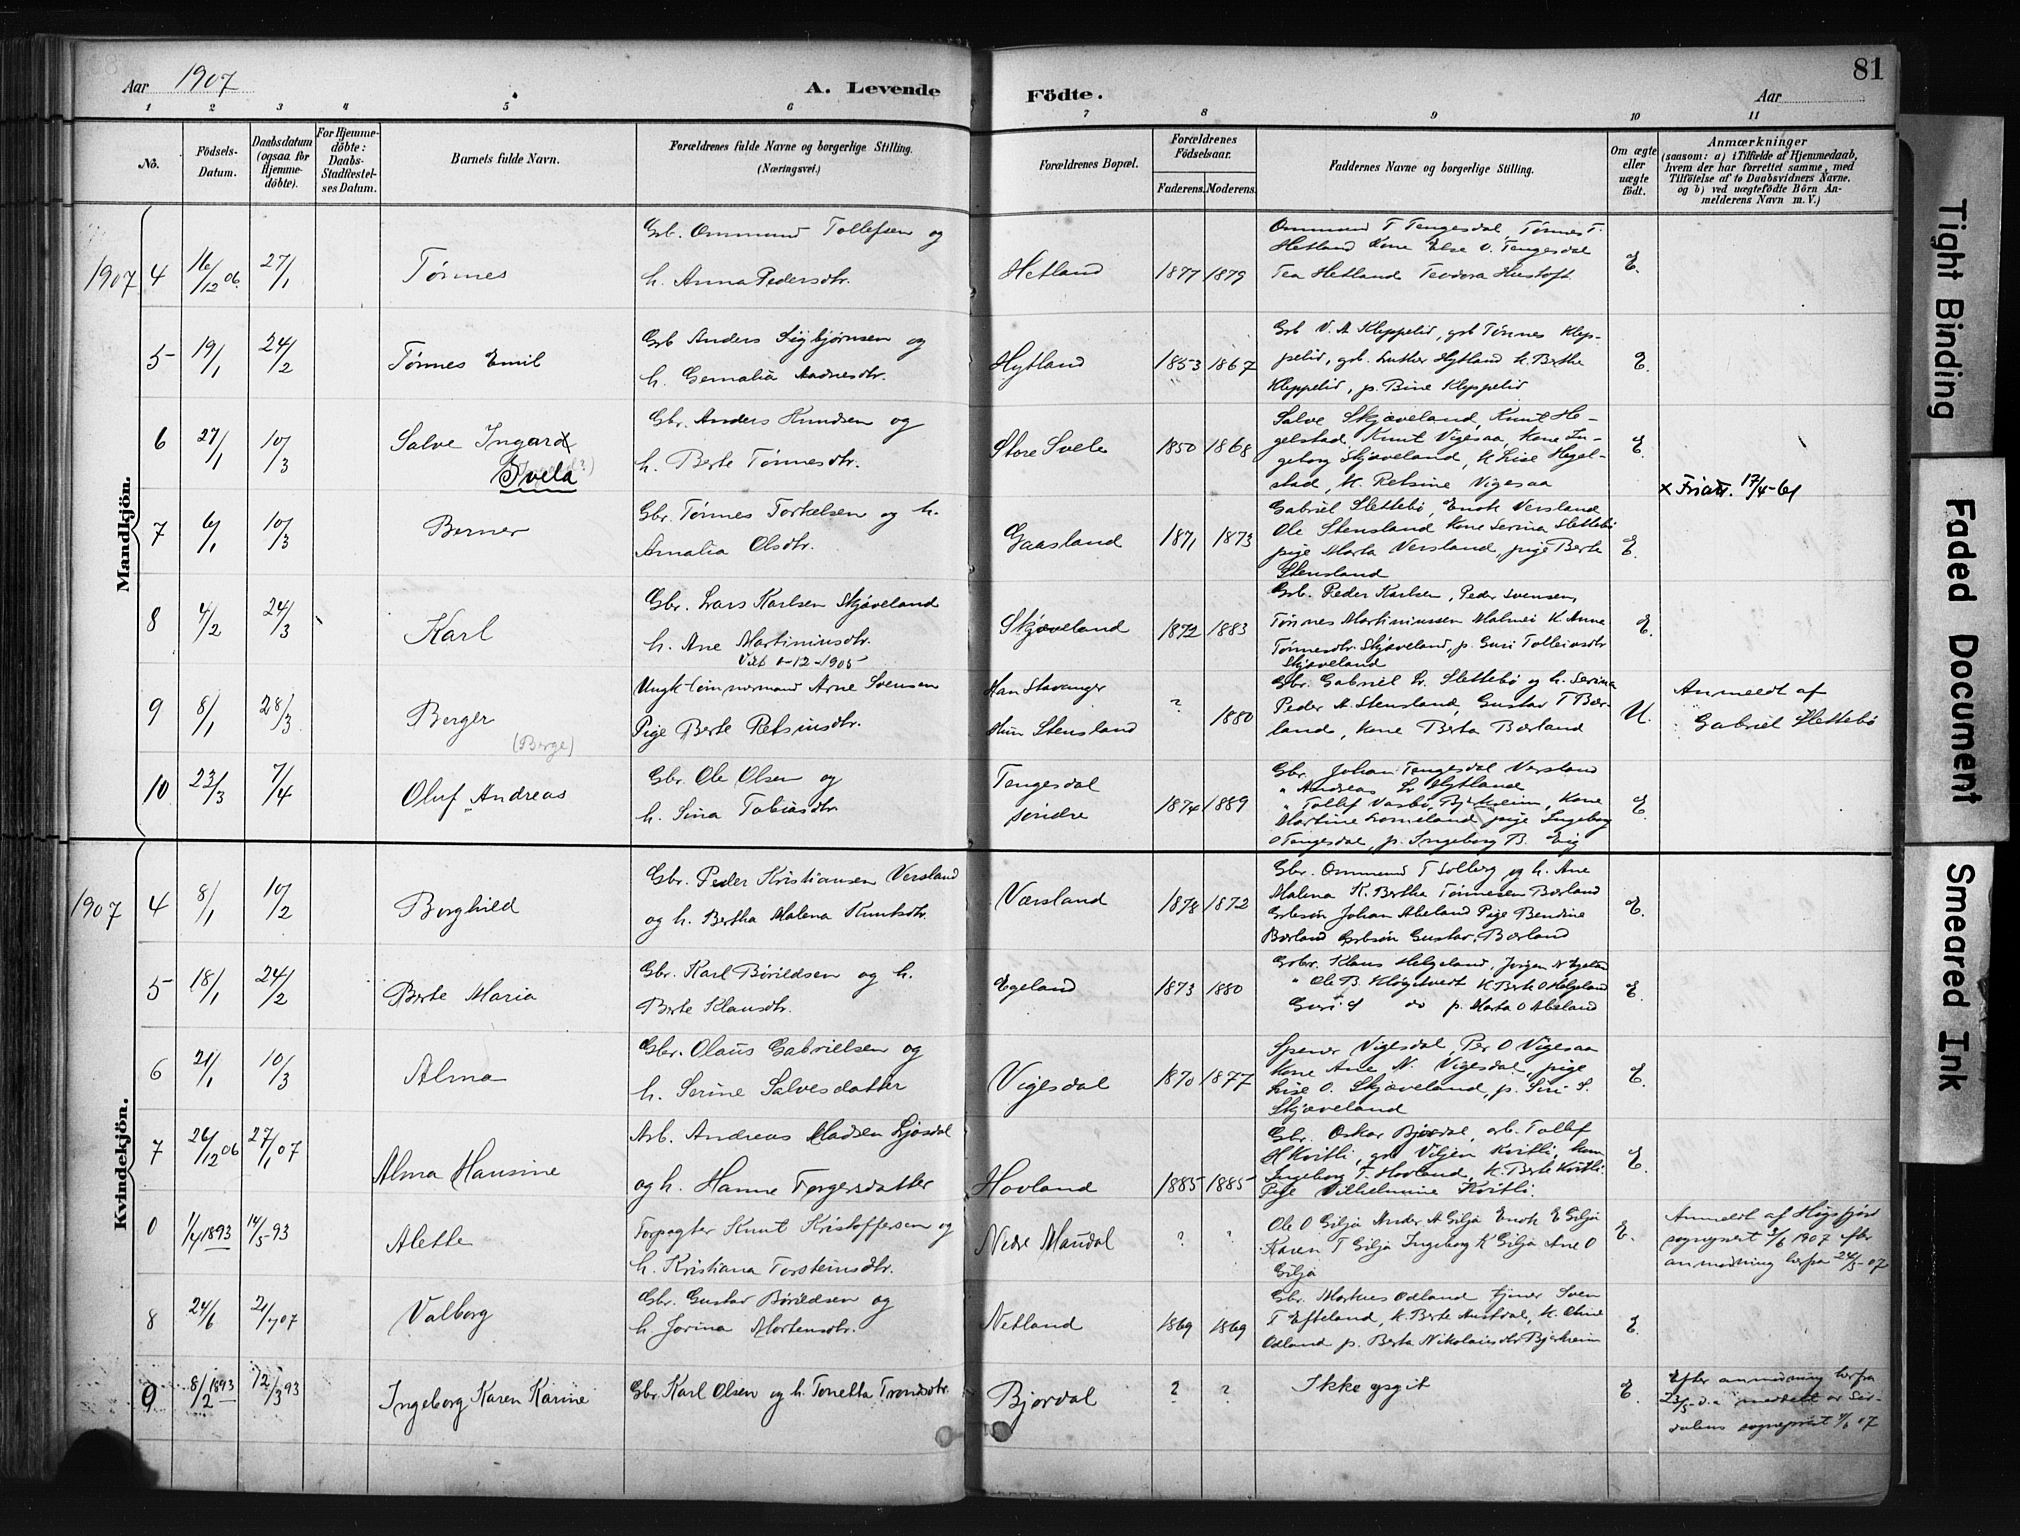 Aar 1907
A. Levende Födte.
Aar
81
1 2 3 4 5 6 7 8 9 10 11
No.
Födsels-
Datum.
Daabsdatum
(ogsaa for
Hjemme-
döbte).
For Hjemme-
döbte:
Daabs-
Stadfæstel-
ses Datum.
Barnets fulde Navn.
Forældrenes fulde Navne og borgerlige Stilling.
(Næringsvei.)
Forældrenes Bopæl.
Forældrenes
Födselsaar.
Faderens. Moderens.
Faddernes Navne og borgerlige Stilling.
Om ægte
eller
uægte
födt.
Anmærkninger
(saasom: a) i Tilfælde af Hjemmedaab,
hvem der har forrettet samme, med
Tilföielse af to Daabsvidners Navne.
og b) ved uægtefödte Börn An-
melderens Navn m. V.)
Mandkjön.
1907 4 16/12 06. 27/1
Tönnes
Gb. Ommund Tollefsen og
h. Anna Pedersdtr.
Hetland
1877 1879
Ommund T Tengesdal, Tönnes T.
Hetland Kone Else O. Tengesdal
Tea Hetland Teodora Hustoft
E.
5 19/1 24/2
Tönnes Emil
Gb Anders Sigbjörnsen og
h. Gemalia Aadnesdtr.
Hytland
1853 1867
Gb V. A Kleppelid, gb Tönnes Klep-
pelid, gb. Luther Hytland k. Berthe
Kleppelid, p. Bine Kleppelid
E.
6 27/1 10/3
Salve Ingard x
Svela
Gb. Anders Knudsen og
h. Berte Tönnesdtr.
Store Svele
1850 1868
Salve Skjæveland, Knut He-
gelstad, Knut Vigesaa, Kone In-
geborg Skjæveland, k Lise Hegel-
stad, k. Retsine Vigesaa
E.
x 17/4-61
7 6/1 10/3
Berner
Gbr. Tönnes Torkelsen og h.
Amalia Olsdtr.
Gaasland
1871 1873
Gabriel Slettebö, Enok Versland
Ole Stensland Kone Serina Slettebö
pige Marta Versland, pige Berte
Stensland
E.
8 4/2 24/3
Karl
Gbr. Lars Karlsen Skjæveland
h. Ane Martiniusdtr.
-12-1905
Skjæveland
1872 1883
Gb. Peder Karlsen, Peder Svensen,
Tönnes Martiniussen Malmei K Anna
Tönnesdtr. Skjæveland, p. Guri Tolleivsdtr
Skjæveland
E.
9 8/1 28/3
Berger
(Berge)
Ungk. tömmermand Arne Svensen
Pige Berte Retsiusdtr.
Han Stavanger
Hun Stensland
? 1880
Gbr. Gabriel L. Slettebö og h. Serina
Peder A. Stensland, Gustav T Bær-
land, kone Berta Bærland
U.
Anmeldt af
Gabriel Slettebö
10 23/3 7/4
Oluf Andreas
Gbr. Ole Olsen og
h. Sina Tobiasdtr.
Tengesdal
söndre
1874 1889
Gbr. Johan Tengesdal Versland
" Andreas L Hytland
" Tollef Varsbö, Bjerkreim, Kone
Martine Lomeland pige Ingeborg
O Tengesdal, p. Ingeborg B. Eig
E.
Kvindekjön.
1907 4 8/1 10/2
Borghild
Gbr. Peder Kristiansen Versland
og h. Bertha Malena Knutsdtr.
Værsland
1878 1872
Gbr. Ommund T Solberg og h. Ane
Malena K. Bertha Tönnesen Bærland
Gbsön Johan Abeland Pige Bendine
Bærland Gbsön Gustav Bærland
E.
5 18/1 24/2
Berte Maria
Gbr. Karl Börildsen og h.
Berte Klausdtr.
Egeland
1873 1880
Gbr. Klaus Helgeland, Jörgen N
" Ole B. Högetvedt k Berte O Helgeland
Guri S do p. Marta O Abeland
E.
6 21/1 10/3
Alma
Gbr. Olaus Gabrielsen og
h. Serine Salvesdatter
Vigesdal
1870 1877
Spener Vigesdal, Per O Vigesaa
kone Ane N. Vigesdal, pige
Lise O. Skjæveland, p. Siri S.
Skjæveland
E.
7 26/12 06 27/1 07
Alma Hansine
Arb. Andreas Madsen Ljösdal
og h. Hanne Torgersdatter
Hovland
1885 1885
Gbr. Oskar Bjordal, arb. Tollef
H Kvitli, gb Viljen Kvitli, kone
Ingeborg T. Hovland, k. Berte Kvitli.
Pige Vilhelmine Kvitli.
E.
0 1/4 1893 14/5-93
Alette
Forpagter Knut Kristoffersen og
h. Kristiana Torsteinsdtr.
Nedre Maudal
? ?
Ole O Giljo Ander A Giljo Enok E Giljo
Karen T Giljo Ingeborg K Giljo Ane O
Giljo
E.
Anmeldt af Högsfjord
sogneprest 3/6 1907 efter
anmodning herfra 24/5-07
8 24/6 21/7 07
Valborg
Gbr. Gustav Börildsen og
h Jorina Mortensdtr.
Netland
1869 1869
Gbr. Markus Odland tjener Sven
T Efteland, k. Berte Austdal, k. Oline
Odland p. Berta Nikolaisdtr Bjerkreim
E.
9 8/2 1893 12/3 93
Ingeborg Karen Karine
Gbr Karl Olsen og h. Tonetta Trondsdtr.
Bjordal
? ?
Ikke opgit
E.
Efter anmodning herfra
23/5- meddelt av Sir-
dalens sogneprest 4/6 07
Tight Binding
Faded Document
Smeared Ink